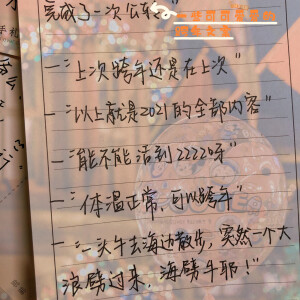 完成了一次公转"
一些甜甜
—"上次跨年还是在上次"
—"以上就是2021的全部内容"
—"能不能活到22222呀"
—"体温正常,可以跨年"
—"一头牛去海边散步,突然一个大
浪劈过来,海劈牛耶!"